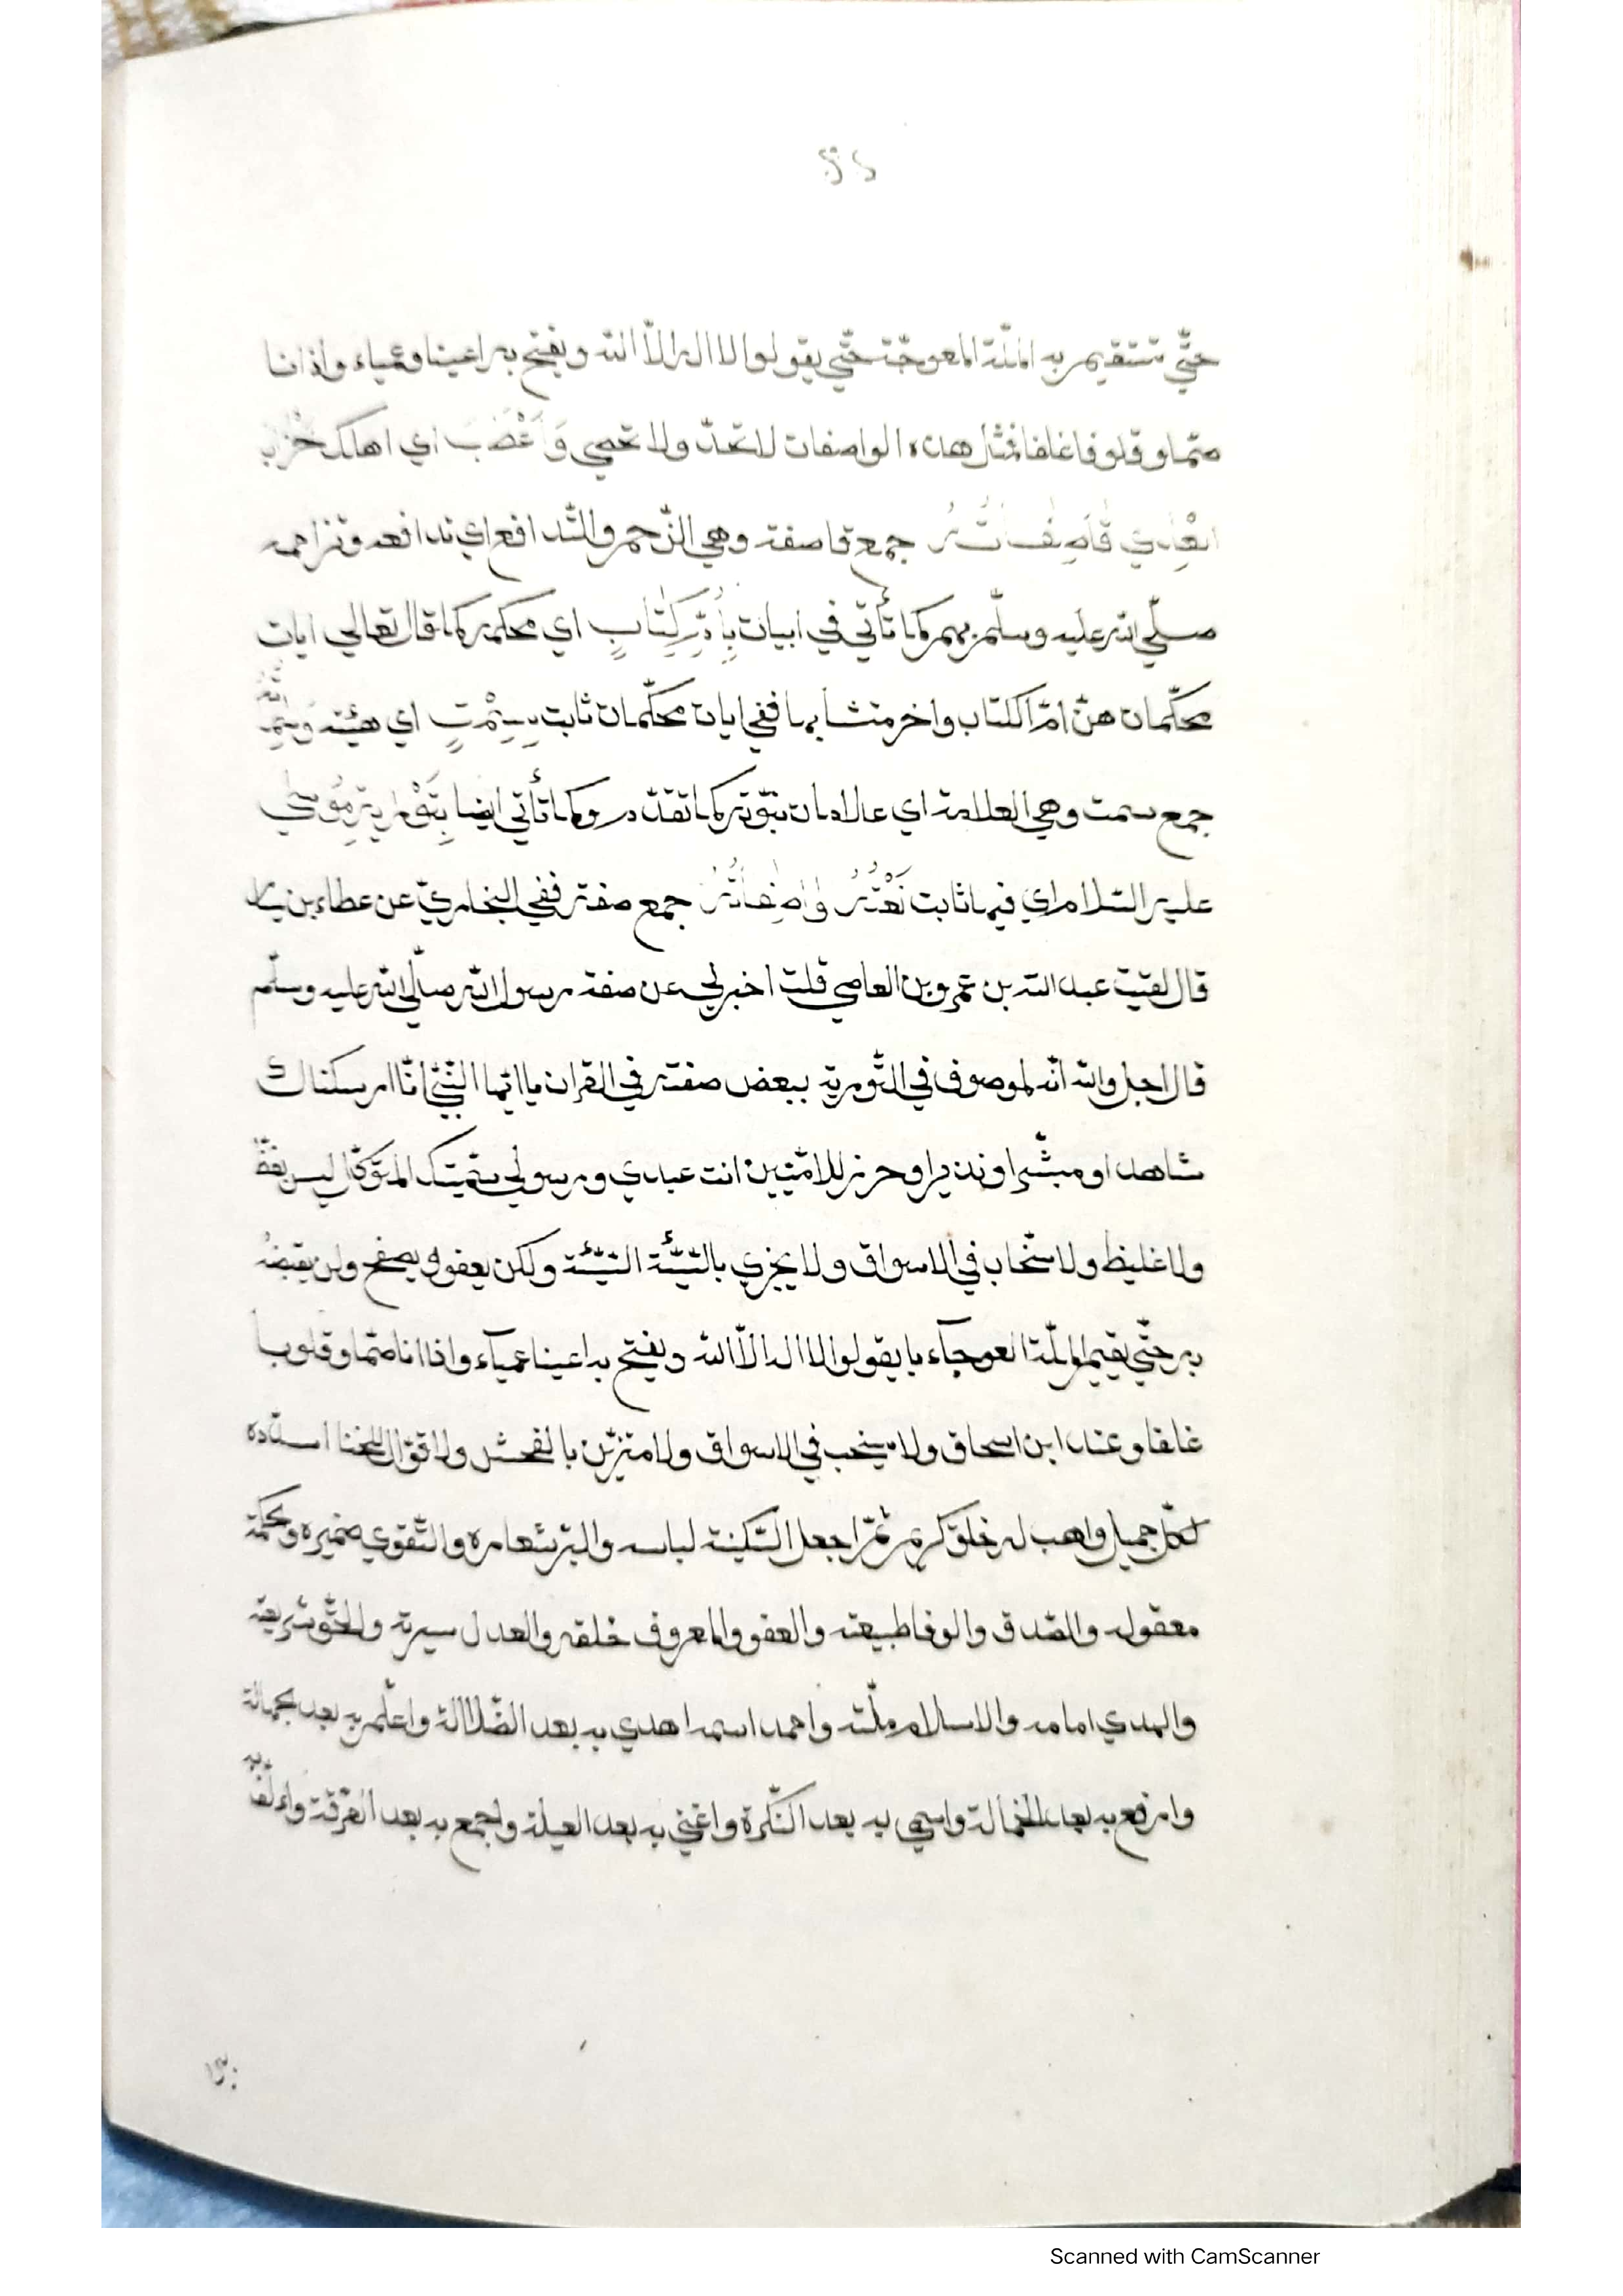 حتّي تستقيم به الملّة المعوجّة حتّي يقولوا لا اله الّا الله ويفتح به اعينا وعمياء واذانا
صمّا وقلوفا غلفا فمثل هذه الواصفات لا تحدّ ولا تحصي وَأَعْضَبَ اي اهلك حْزَابَ
الْعِادِي قَٰاصِفَٰاتُهُ جمع قاصفة وهي الزّحم والتّدافع اي تدافعه وتزاحمه
صلّي الله عليه وسلّم بهم كما تأتي في ابيات بِأُمِّ كِتَٰابٍ اي محكمه كما قال تعالي ايات
محكّمات هنّ امّ الكتاب واخر متشابها ففي ايات محكّمات ثابت بِسِمْتٍ اي هيئة وَسِمَاتُهُ
جمع سمت وهي العلامة اي عالامات نبّوته كما تقدّم وكما تأتي ايضا بِتَوْرٰيةِ مُوسٰي
عليه السّلام اي فيها ثابت نَعْتُهُ وَٰاصِفَٰاتُهُ جمع صفته ففي البخاريّ عن عطاء بن يسار
قال لقيت عبد الله بن عمرو بن العاصي قلت اخبرني عن صفة رسول الله صلّي الله عليه وسلّم
قال اجل والله انّه لموصوف في التّورية ببعض صفته في القران يا ايّها النّبيّ انّا ارسلناك
شاهدا ومبشّرا ونذيرا وحرزا للامّيّين انت عبدي ورسولي سمّيتك المتوكّل ليس بفظّ
ولا غليظ ولا سخّاب في الاسواق ولا يجزي بالسّيّئة السّيّئة ولكن يعفو ويصفح ولن يقبضه
به حتّي يقيم الملّة العوجاء با يقولوا لا اله الّا الله ويفتح به اعينا عمياء واذاانا صمّا وقلوبا
غلفا وعند ابن اسحاق ولا سخب في الاسواق ولا متزيّن بالفحش ولا قوّال للخنا اسدّده
لكلّ جميل واهب له خلق كريم ثمّ اجعل السّكينة لباسه والبرّ شعاره والتّقوي ضميره وحكمة
معقوله والصّدق والوفا طبيعته والعفو والمعروف خلقه والعدل سيرته والحقّ شريعته
والهدي امامه والاسلام ملّته واحمد اسمه اهدي به بعد الضّلالة واعلّم به بعد جهالة
وارفع به بعد الخمالة واسمي به بعد النّكرة واغني به بعد العيلة واجمع به بعد الفرقة واؤلّف به